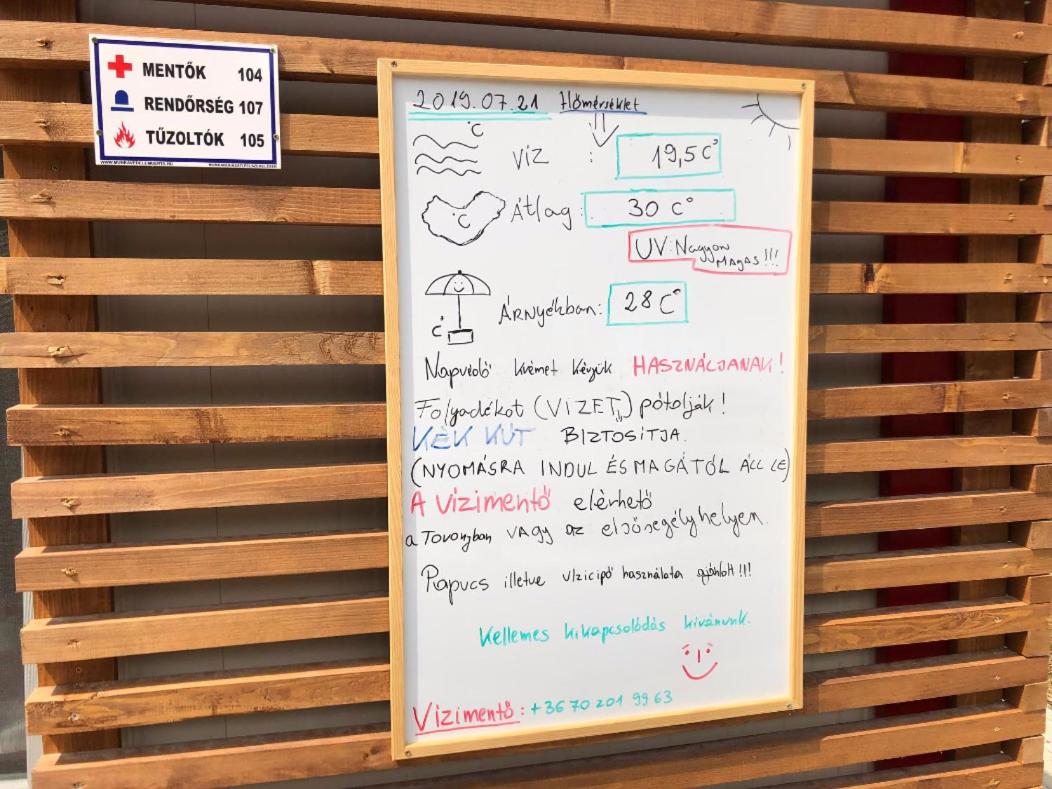 MENTŐK 104
RENDŐRSÉG 107
TŰZOLTÓK 105
2019.07.21 Hőmérséklet
°C
VÍZ : 19,5 C°
°C Átlag: 30 C°
UV: Nagyon
MAGAS!!!
C° ÁRNYÉKban: 28 C°
Napvédő krémet kérjük HASZNÁLJANAK!
Folyadékot (VIZET) pótolják!
KÉK KÚT BIZTOSÍTJA.
(NYOMÁSRA INDUL ÉS MAGÁTÓL ÁLL LE)
A Vízimentő elérhető
a Toronyban vagy az elsősegélyhelyen.
Papucs illetve vízicipő használata ajánlott!!!
Kellemes kikapcsolódás kívánunk.
Vízimentő: +36 70 201 99 63